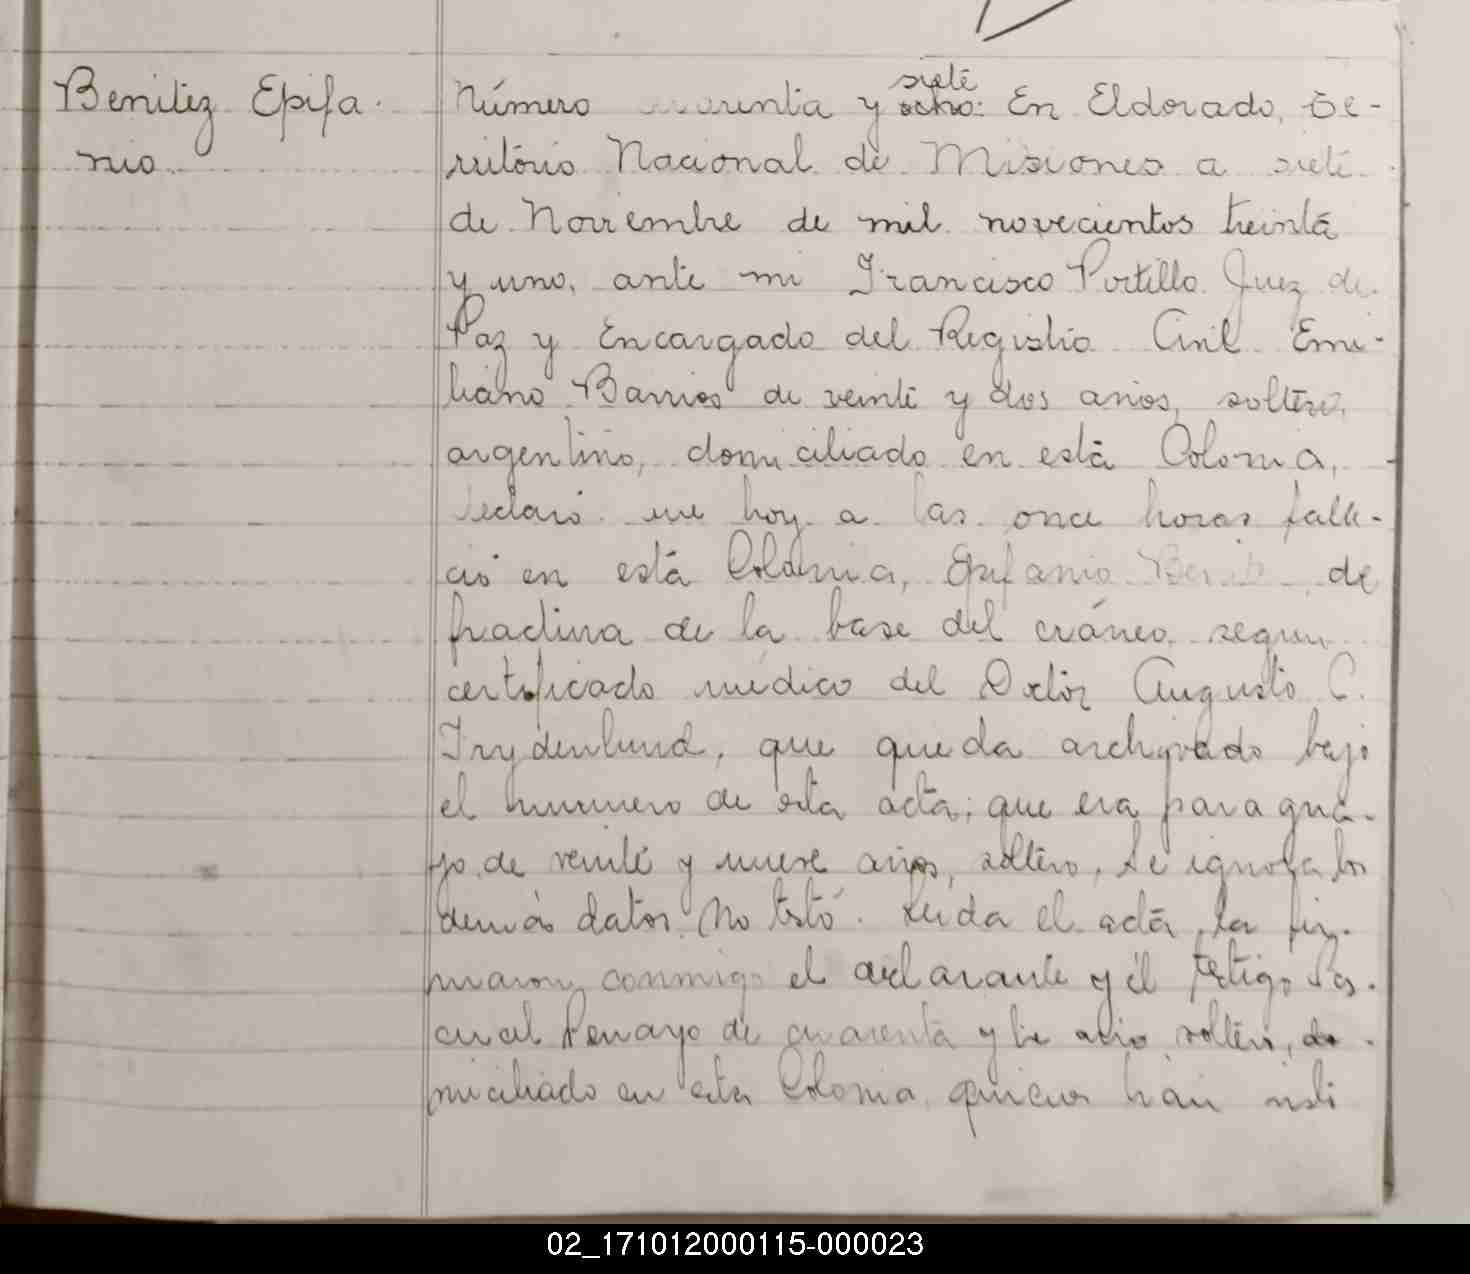 Benitez Epifa-
nio
siete
Número cuarenta y ocho: En Eldorado, Te-
rritório Nacional de Misiones a siete
de Noviembre de mil novecientos treinta
y uno, ante mi Francisco Portillo Juez de
Paz y Encargado del Registro Civil Emi-
liano Barrios de veinte y dos años, soltero,
argentino, domiciliado en está Colonia,
declaró que hoy a las once horas falle-
ció en está Colonia, Epifanio Benitez de
fractura de la base del cráneo segun
certificado médico del Doctor Augusto C.
Frydenlund, que queda archivado bajo
el numero de esta acta; que era paragua-
yo, de veinte y nueve años, soltero, se ignora los
demás datos. No testó. Leida el acta, la fir-
maron conmigo el declarante y el testigo Pas-
cual Penayo de cuarenta y tre año soltero, do-
miciliado en esta Colonia, quienes han visto
02_171012000115-000023